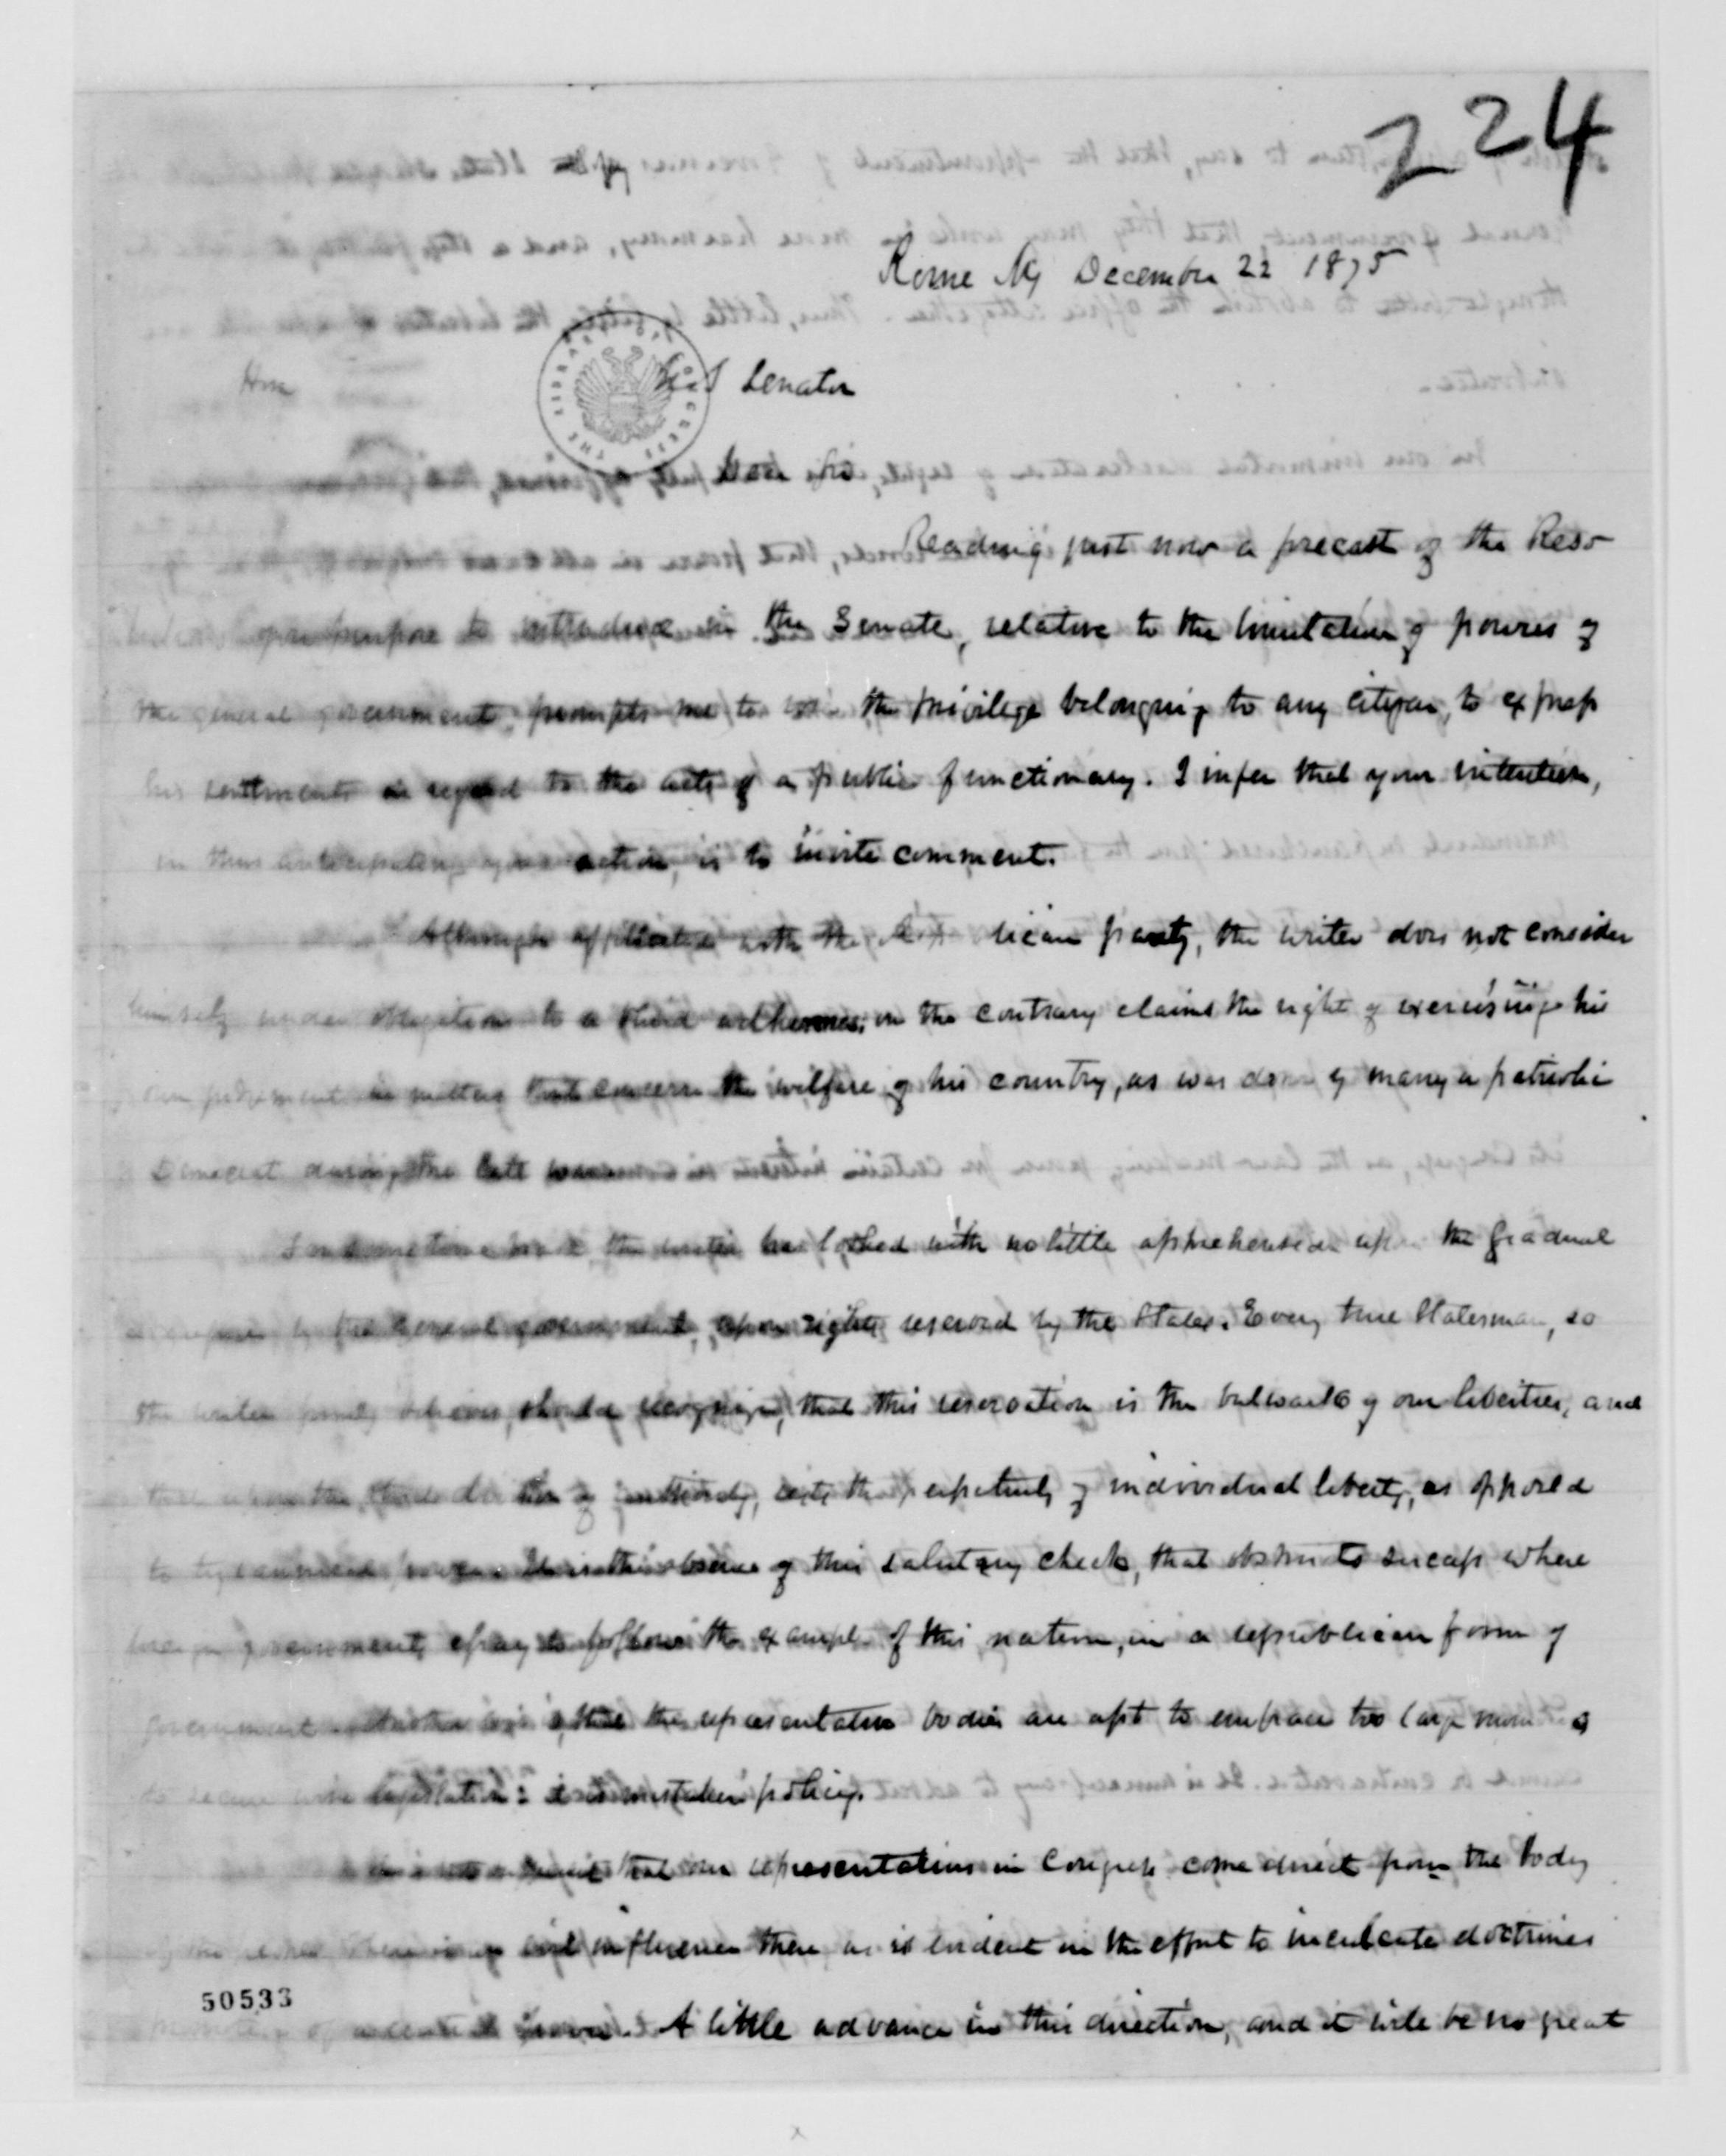 224
Rome Ny December 22 1875
Hon
U.S Senator
Dear Sir
Reading just now a forecast of the Reso
purpose to introduce in the Senate, relative to the limitation of powers of
the general government, prompts me to use the privilege belonging to any citizen, to express
his sentiments in regard to the acts of a public functionary. I infer that your intention,
in thus anticipating your action, is to invite comment.
Although affiliated with the lican party, the writer does not consider
himself under obligation to a blind adherence; on the contrary claims the right of exercising his
own judgment in matters that concern the welfare of his country, as was done by many a patriotic
Democrat during the late war
the writer has looked with no little apprehension upon the gradual
by the General government, upon rights reserved by the States. Every true Statesman, so
the writer firmly believes, should recognize, that this reservation is the bulwark of our liberties, and
that upon the of authority, rests the perpetuity of individual liberty, as opposed
to power. the absence of this salutary check, that obstructs success where
foreign governments essay to follow the example of this nation, in a republican form of
government that the representative bodies are apt to embrace too large
to secure wise legislation: a mistaken policy.
that our representatives in Congress come direct from the body
of the evil influence there, as is evident in the effort to inculcate doctrines
power. A little advance in this direction, and it will be no great
50533
THE LIBRARY OF CONGRESS